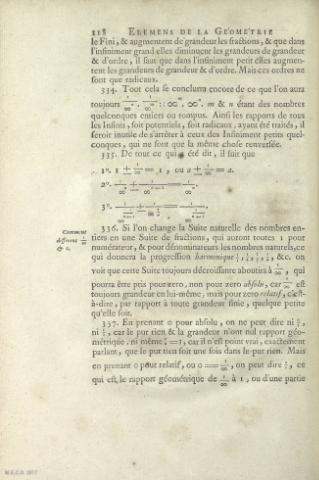 118 ELEMENS DE LA GEOMETRIE
le Fini, & augmentent de grandeur les fractions, & que dans
l'infiniment grand elles diminuent les grandeurs de grandeur
& d'ordre, il faut que dans l'infiniment petit elles augmen-
tent les grandeurs de grandeur & d'ordre. Mais ces ordres ne
sont que radicaux.
334. Tout cela se conclurra encore de ce que l'on aura
toujours
m & n étant des nombres
quelconques entiers ou rompus. Ainsi les rapports de tous
les Infinis, soit potentiels, soit radicaux, ayant été traités, il
seroit inutile de s'arrêter à ceux des Infiniment petits quel-
conques, qui ne sont que la même chose renversée.
335. De tout ce qui a été dit, il suit que
1°. 1 + 1/∞ = 1, ou a + 1/∞ = a.
2°.
3°.
Comment
differens
& 0.
336. Si l'on change la Suite naturelle des nombres en-
tiers en une Suite de fractions, qui auront toutes 1 pour
numérateur, & pour dénominateurs les nombres naturels, ce
qui donnera la progression harmonique
&c. on
voit que cette Suite toujours décroissante aboutira à 1/∞, qui
pourra être pris pour zero, non pour zero absolu, car 1/∞ est
toujours grandeur en lui-même, mais pour zero relatif, c'est-
à-dire, par rapport à toute grandeur finie, quelque petite
qu'elle soit.
337. En prenant 0 pour absolu, on ne peut dire ni
ni
car le pur rien & la grandeur n'ont nul rapport géo-
métrique, ni même
= 1, car il n'est point vrai, exactement
parlant, que le pur rien soit une fois dans le pur rien. Mais
en prenant 0 pour relatif, ou 0 = 1/∞, on peut dire
ce
qui est le rapport géométrique de 1/∞ à 1, ou d'une partie